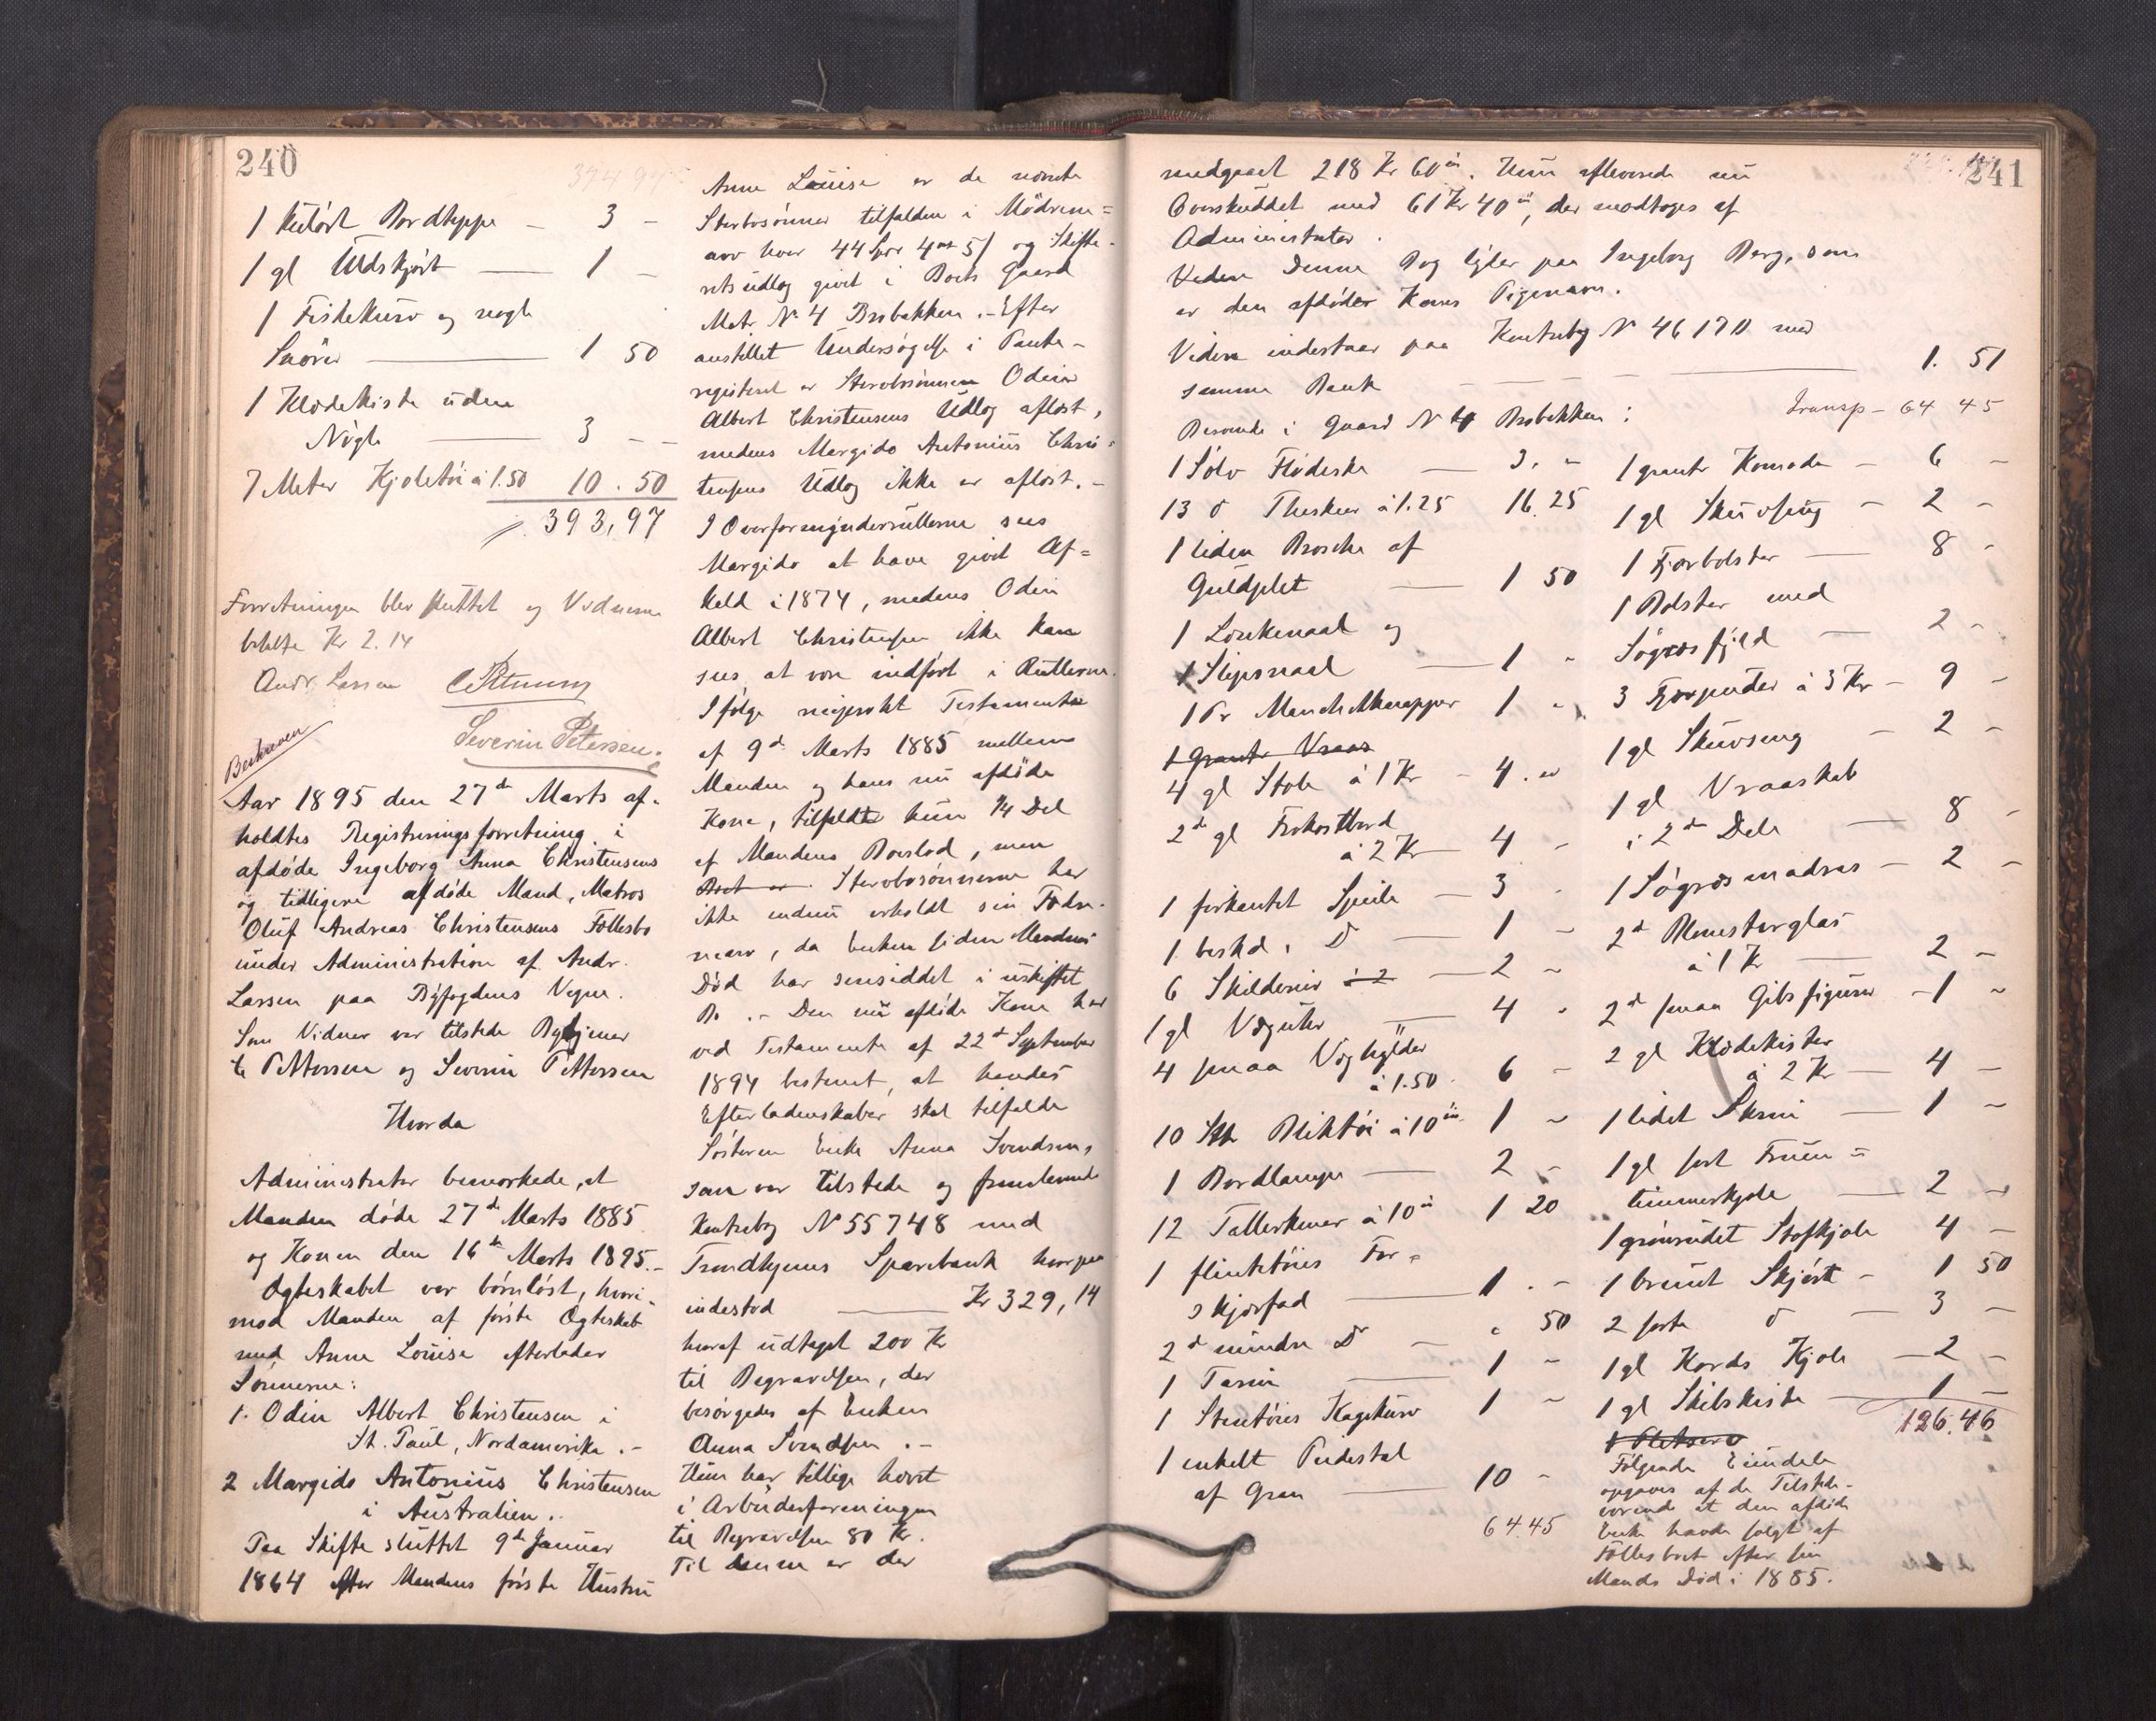 240
1 kulørt Bordteppe – 3 –
1 gl Uldskjørt — 1 –
1 Fiskekurv og nogle
Snører — 1 50
1 Klædekiste uden
Nøgle — 3 –
7 Meter Kjoletøi à 1.50 10.50
393,97
Forretningen blev sluttet og Vidnerne
betalte Kr 2.14
Andr. Larsen
Severin Petersen.
Beskreven
Aar 1895 den 27de Marts af-
holdtes Registreringsforretning i
afdøde Ingeborg Anna Christensens
og tidligere afdøde Mand, Matros
Oluf Andreas Christensens Fællesbo
under Administration af Andr.
Larsen paa Byfogdens Vegne.
Som Vidner var tilstede
Pettersen og Severin Pettersen
Hvorda
Administrator bemærkede, at
Manden døde 27de Marts 1885
og Konen den 16de Marts 1895.–
Ægteskabet var børnløst, hvori-
mod Manden af første Ægteskab
med Anne Louise efterlader
Sønnerne:
1. Odin Albert Christensen i
St. Paul, Nordamerika.–
2 Margido Antonius Christensen
i Australien.
Paa Skifte sluttet 9de Januar
1864 efter Mandens første Hustru
Anne Louise er de nævnte
Stervbosønner tilfalden i Mødrene-
arv hver 44 Spd 4 ort 5 s og Skifte-
retsudlæg givet i Boets Gaard
Matr. No 4 Brobakken.– Efter
anstillet Undersøgelse i Pante-
registeret er Stervbosønnen Odin
Albert Christensens Udlæg aflæst,
medens Margido Antonius Chris-
tensens Udlæg ikke er aflæst.–
I Overformynderrullerne sees
Margido at have givet Af-
kald i 1874, medens Odin
Albert Christensen ikke kan
sees at være indført i Rullerne.
Ifølge Testamente
af 9de Marts 1885 mellem
Manden og hans nu afdøde
Kone, tilfaldt kun 1/4 Del
af Mandens Boeslod, men
Stervbosønnerne har
ikke endnu erholdt sin Fædre-
nearv, da Enken siden Mandens
Død har hensiddet i uskiftet
Bo.– Den nu afdøde Kone har
ved Testamente af 22de September
1894 bestemt, at hendes
Efterladenskaber skal tilfalde
Søsteren Enke Anna Svendsen,
som var tilstede og fremlevered
Kontrabog No 55748 med
Trondhjems Sparebank hvorpaa
indestod — Kr 329,14
hvoraf udtaget 200 Kr
til Begravelsen, der
besørgedes af Enken
Anna Svendsen.–
Hun har tillige hævet
i Arbeiderforeningen
til Begravelsen 80 Kr.
Til denne er der
241
medgaaet 218 Kr 60 ør. Hun afleverede nu
Overskuddet med 61 Kr 40 ør, der modtoges af
Administrator.
Denne Bog lyder paa Ingeborg Berg, som
er den afdøde Kones Pigenavn.
Videre indestaar paa Kontrabog No 46170 med
samme Bank — 1. 51
Beroende i Gaard No 4 Brobakken:
1 Sølv Flødeske — 3. –
13 do Theskeer à 1.25 16.25
1 liden Brosche af
Guldplet — 1 50
1 Lorkenaal og
1 Slipsnaal — 1 –
1 Pr Manchetknapper 1 –
1 grantr Vraas
4 gl Stole à 1 Kr – 4. –
2de gl Frokostbord
à 2 Kr – 4 –
1 firkantet Speile – 3 –
1 beskd. Do — 1 –
6 Skilderier — 2 –
1 gl Væguhr — 4 –
4 smaa Væghylder
à 1.50 6 –
10 Stk Bliktøi à 10 ør 1 –
1 Bordlampe — 2 –
12 Tallerkener à 10 ør 1 20
1 flintetøies For-
skjærfad — 1. –
2de mindre Do — „ 50
1 Tarin — 1 –
1 Stentøies Kagekurv 1 –
1 enkelt Pidestal
af Gran — 10 –
64.45
Transp – 64 45
1 grantr Komode – 6 –
1 gl Skuvseng – 2 –
1 Fjærbolster — 8 –
1 Bolster med
Søgræsfyld — 2 –
3 Fjærputer à 3 Kr – 9 –
1 gl Skuvseng – 2 –
1 gl Vraaskab
i 2de Dele — 8 –
1 Søgræsmadras – 2 –
2de Blomsterglas
à 1 Kr — 2 –
2de smaa Gibsfigurer – 1 –
2 gl Klædekister
à 2 Kr — 4 –
1 lidet Skrin — 1 –
1 gl sort Fruen-
timmerkjole — 2 –
1 grønrudet Stofkjole 4 –
1 brunt Skjørt – 1 50
2 sorte do — 3 –
1 gl Hverdags Kjole – 2 –
1 gl Skibskiste — 1 –
126.46
Følgende Eiendele
opgaves af de Tilstede-
værende at den afdøde
Enke havde solgt af
Fællesboet efter sin
Mands Død i 1885.